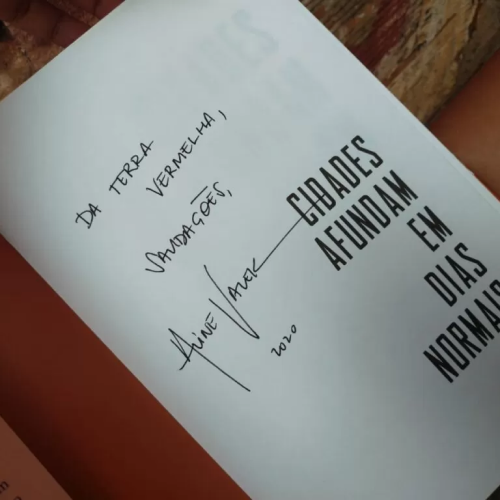 DA TERRA
VERMELHA,
SAUDAÇÕES,
ALINE VALEK
2020
CIDADES
AFUNDAM
EM
DIAS
NORMAIS